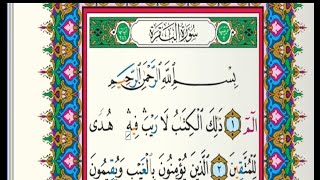 سُورَةُ الْبَقَرَةِ
بِسْمِ اللَّهِ الرَّحْمَٰنِ الرَّحِيمِ
الٓمٓ ١ ذَٰلِكَ الْكِتَٰبُ لَا رَيْبَ ۛ فِيهِ ۛ هُدًى
لِّلْمُتَّقِينَ ٢ الَّذِينَ يُؤْمِنُونَ بِالْغَيْبِ وَيُقِيمُونَ